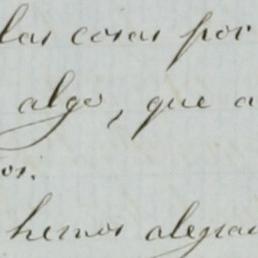 las cosas por
algo, que a
os.
hemos alegra